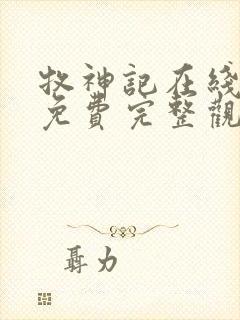 牧神記在綫
免費完整觀
聶力